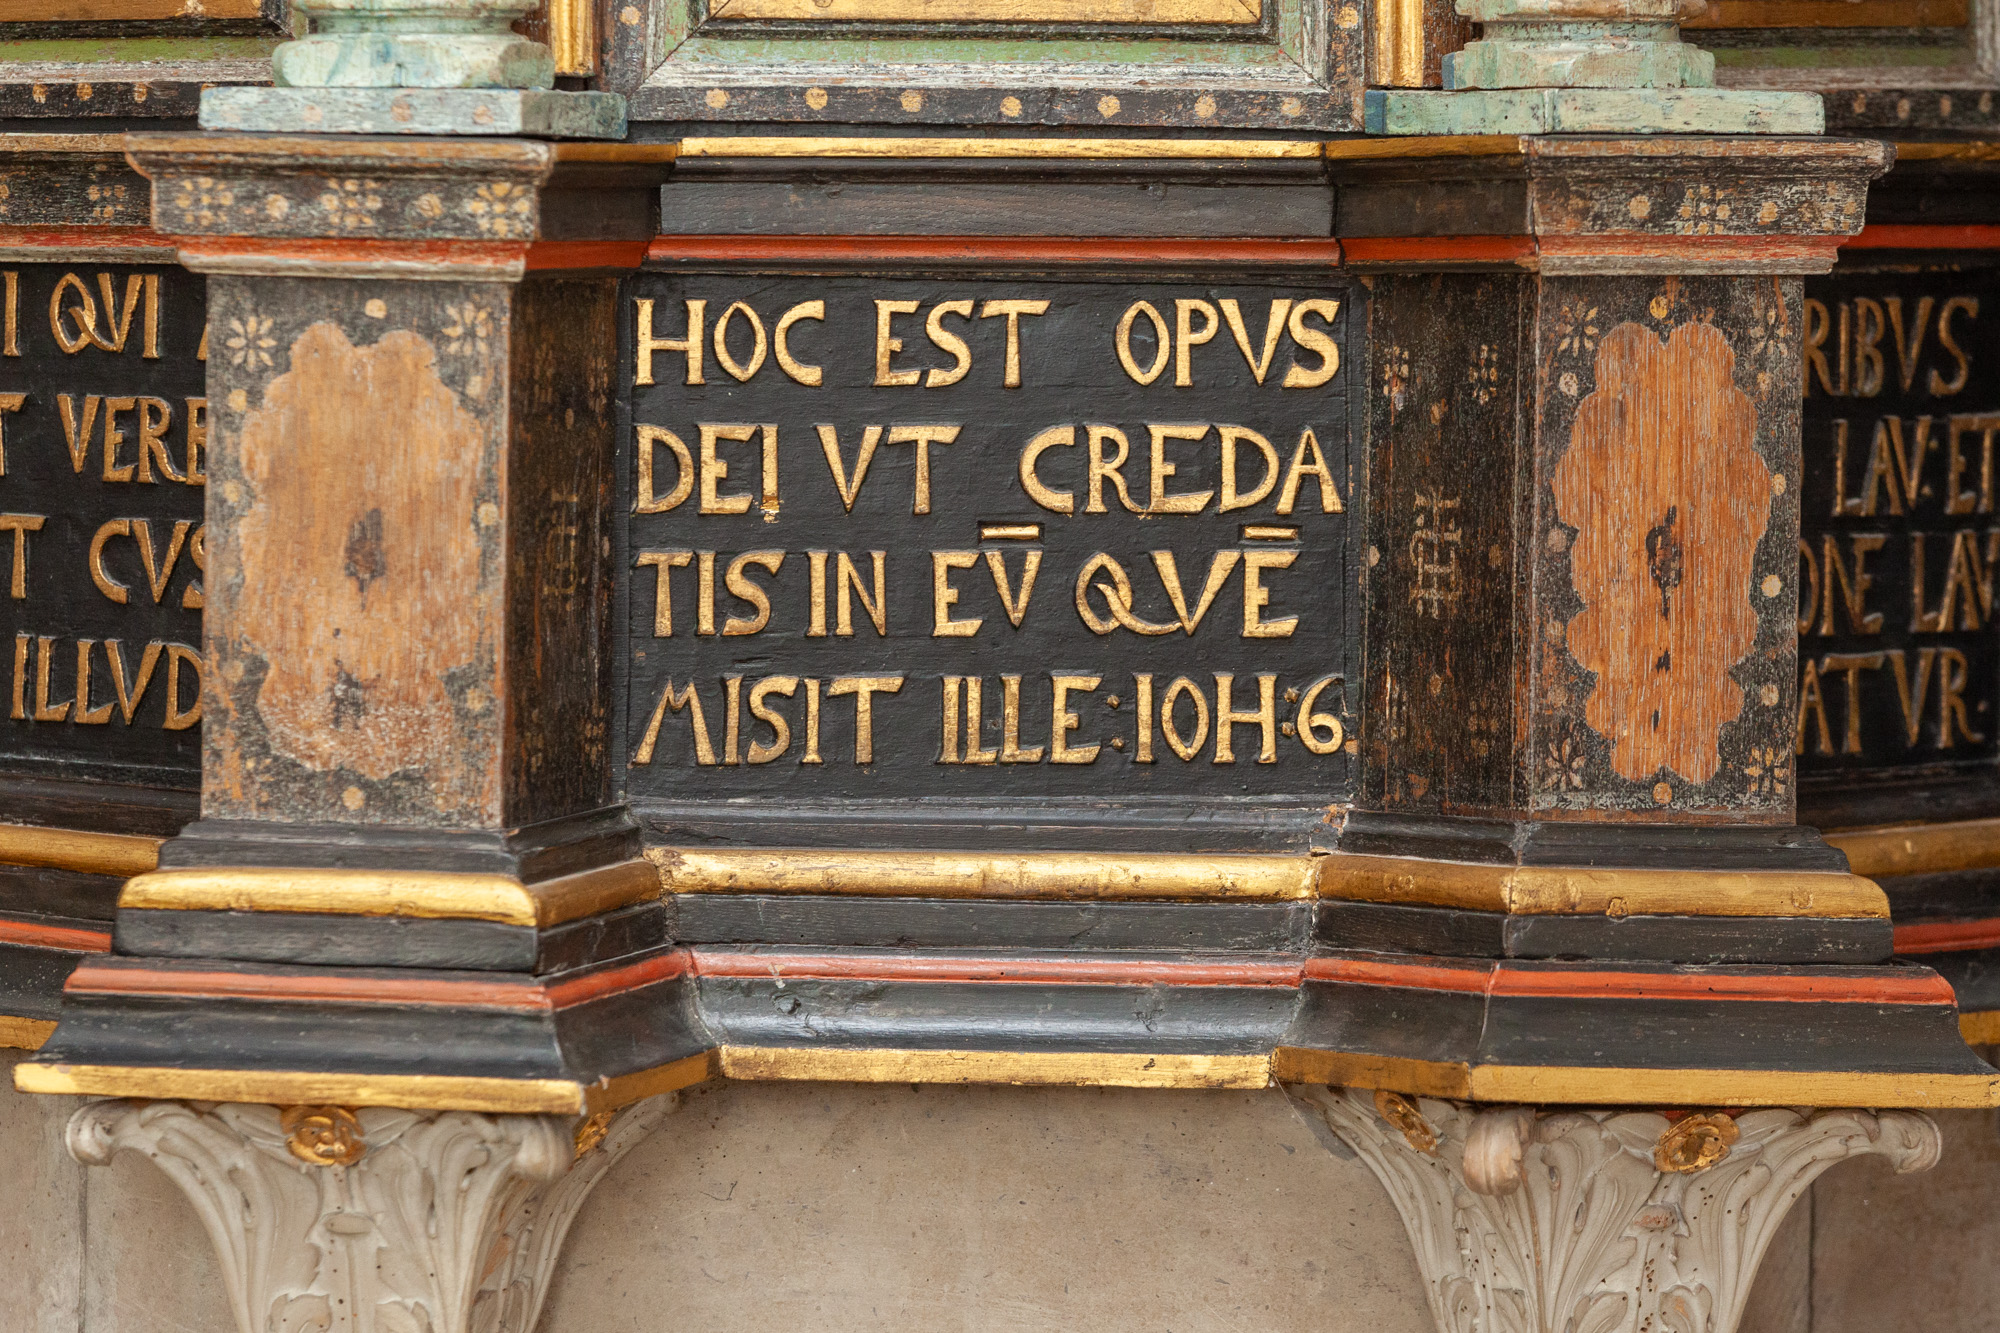 QVI
VERB
CVS
ILLVD
HOC EST OPVS
DEI VT CREDA
TIS IN EV̄ QVĒ
MISIT ILLE: IOH: 6
RIBVS
LAV. ET
ONE LAV
ATVR.